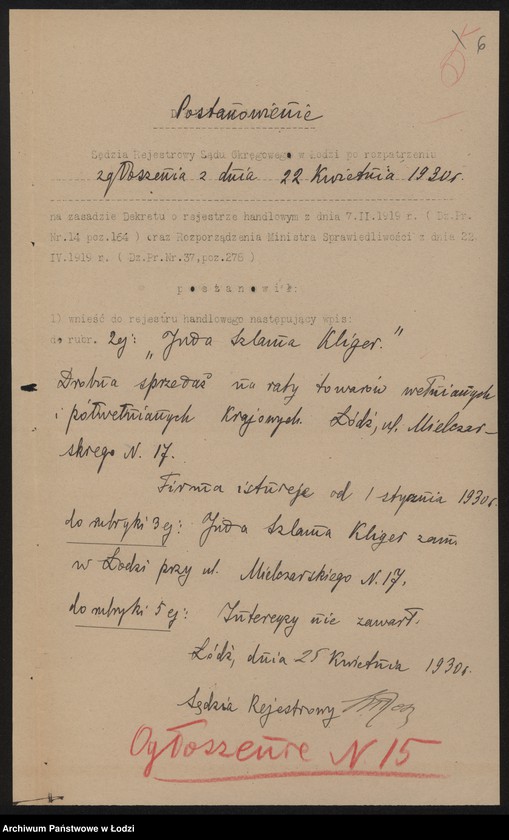 6
Postanowienie
Sędzia Rejestrowy Sądu Okręgowego w Łodzi po rozpatrzeniu
zgłoszenia z dnia 22 Kwietnia 1930r.
na zasadzie Dekretu o rejestrze handlowym z dnia 7.II.1919 r. ( Dz.Pr.
Nr.14 poz.164 ) oraz Rozporządzenia Ministra Sprawiedliwości z dnia 22.
IV.1919 r. ( Dz.Pr.Nr.37,poz.276 )
p o s t a n o w i ł:
1) wnieść do rejestru handlowego następujący wpis:
do rubr. 2ej: „Juda Szlama Kliger."
Drobna sprzedaż na raty towarów wełnianych
i półwełnianych Krajowych. Łódź, ul. Mielczar-
skiego N. 17.
Firma istnieje od 1 stycznia 1930r.
do rubryki 3ej: Juda Szlama Kliger zam.
w Łodzi przy ul. Mielczarskiego N. 17.
do rubryki 5ej: Intercyzy nie zawarł.
Łódź, dnia 25 Kwietnia 1930r.
Sędzia Rejestrowy
Ogłoszenie N. 15
Archiwum Państwowe w Łodzi